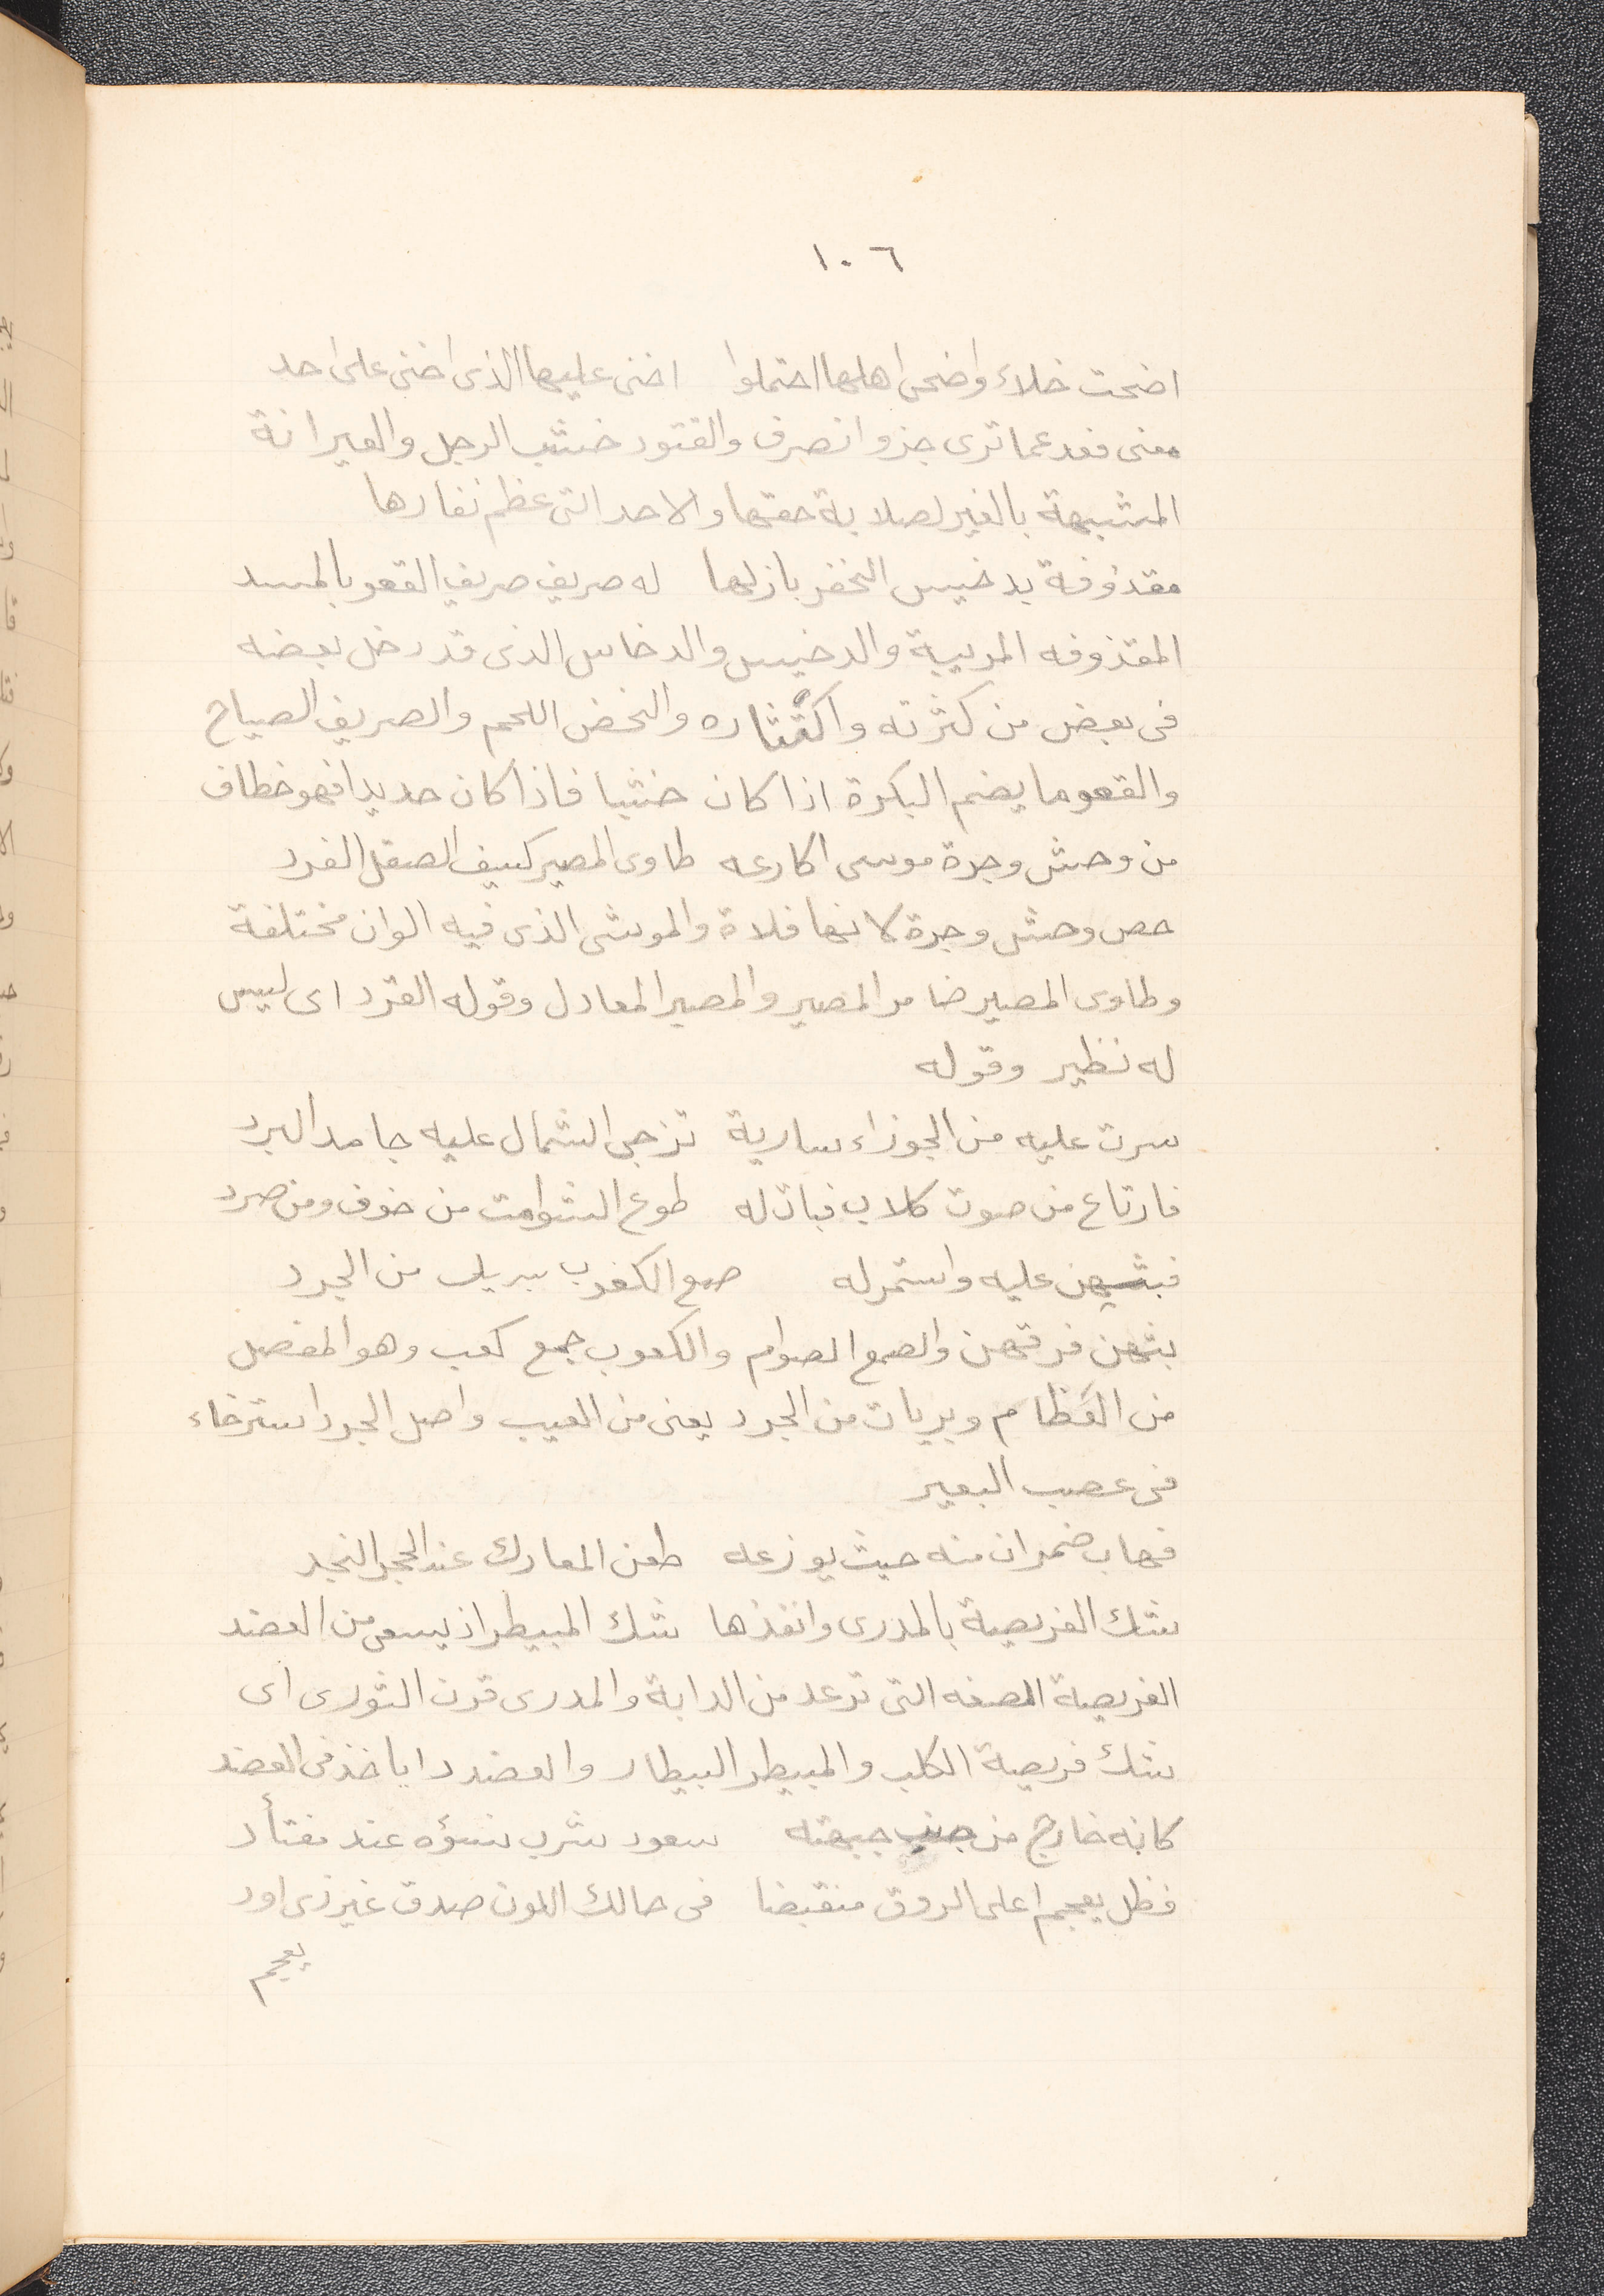 ١٠٦
اضحت خلاء واضحى اهلها احتملوا اخنى عليها الذى اخنى على احد
معنى فعد عما ترى جزو انصرف والقتود خشب الرجل والعيرانة
المشبهة بالغير لصلابة حقها والاحد التى عظم نفارها
مقذوفة بدخيس النخفر بازلها له صريف صريف القعو بالمسد
المقذوفه المربية والدخيس والدخاس الذى قد دخل بعضه
فى بعض من كثرته واكتثاره والنخض اللحم والصريف الصياح
والقعو ما يضم البكرة اذا كان خشبا فاذا كان حديدا فهو خطاف
من وحش وجرة موسى اكارعه طاوى المصير كسيف الصقل الفرد
خص وحش وجرة لانها فلاة والموشى الذى فيه الوان مختلفة
وطاوى المصير ضامر المصير والمصير المعادل وقوله الفرد اى ليس
له نظير وقوله
سرت عليه من الجوزاء سارية تزجى الشمال عليه جامد البرد
فارتاع من صوت كلاب فبات له طوع الشوامت من خوف ومن صرد
فبثهن عليه واستمر له صمع الكعوب بريات من الجرد
بثهن فرقهن والصمع الصوام والكعوب جمع كعب وهو المفصل
من العظام وبريات من الجرد يعنى من العيب واصل الجرد استرخاء
فى عصب البعير
فهاب ضمران منه حيث يوزعه طعن المعارك عند الحجر النجد
شك الفريصة بالمدرى وانفذها شك المبيطر اذ يسعى من العضد
الفريصة المصغه التى ترعد من الدابة والمدرى قرن الثورى اى
شك فريصة الكلب والمبيطر البيطار والعضد دا ياخذ فى العضد
كانه خارج من جنب جبهته سعود شرب نسؤه عند مفتأد
فظل يعجم اعلى الروق منقبضا فى حالك اللون صدق غير ذى اود
يعجم